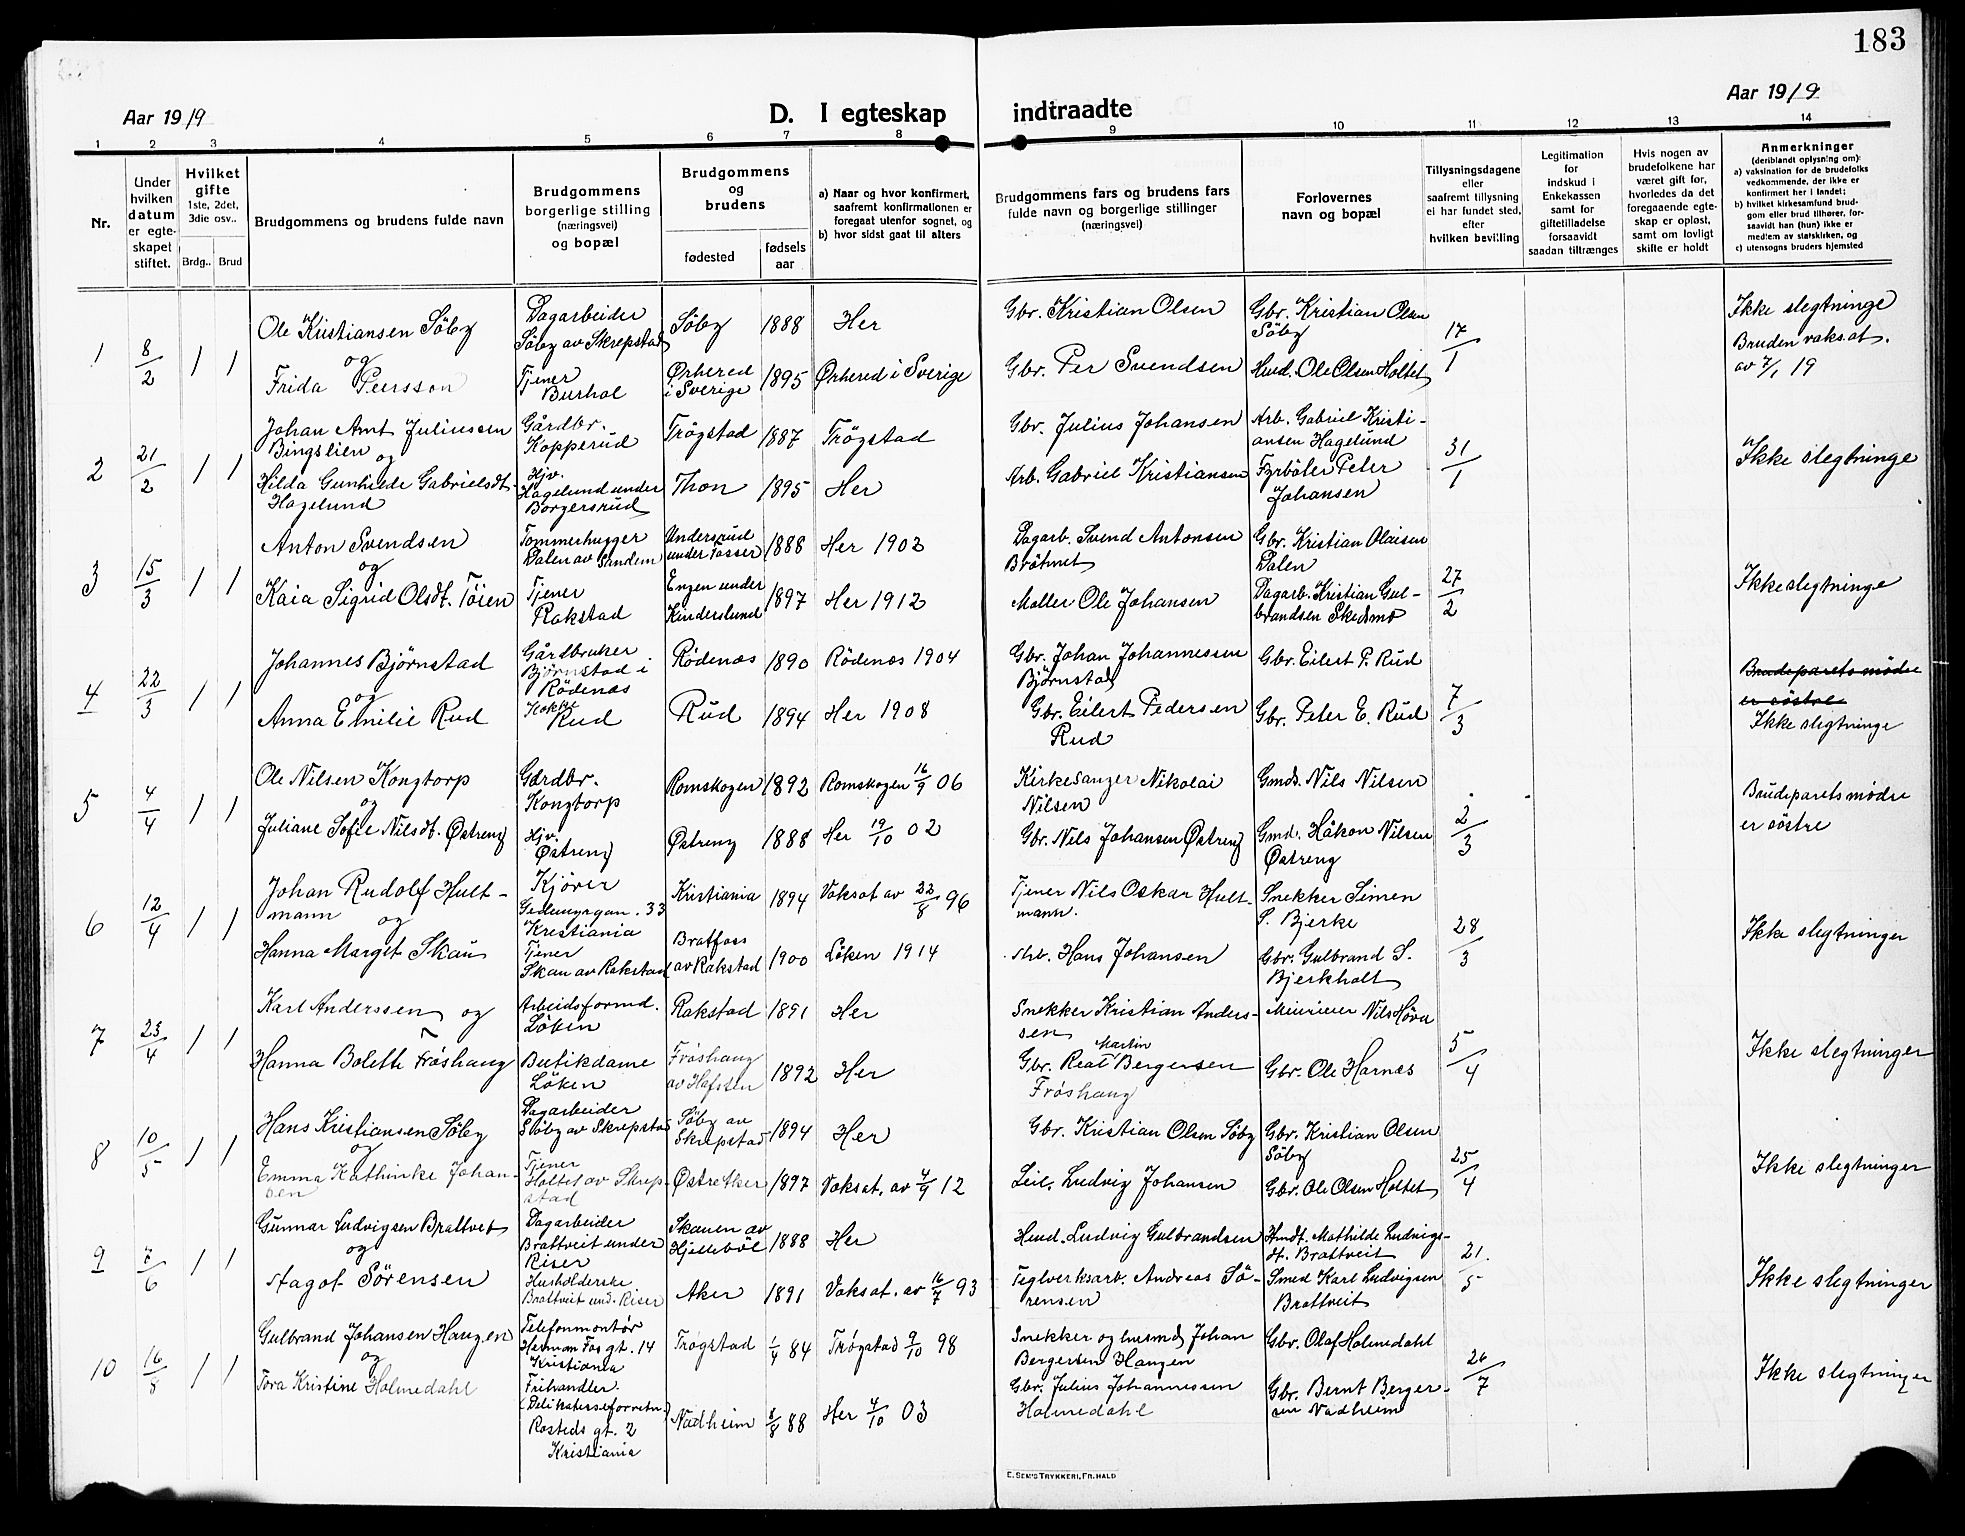 183
Aar 1919
D. I egteskap indtraadte
Aar 1919
1 2 3 4 5 6 7 8 9 10 11 12 13 14
Nr.
Under hvilken datum er egte-skapet stiftet.
Hvilket gifte 1ste, 2det, 3die osv..
Brdg.. Brud
Brudgommens og brudens fulde navn
Brudgommens borgerlige stilling (næringsvei) og bopæl
Brudgommens og brudens
fødested
fødsels aar
a) Naar og hvor konfirmert, saafremt konfirmationen er foregaat utenfor sognet, og
b) hvor sidst gaat til alters
Brudgommens fars og brudens fars fulde navn og borgerlige stillinger (næringsvei)
Forlovernes navn og bopæl
Tillysningsdagene eller saafremt tillysning ei har fundet sted, efter hvilken bevilling
Legitimation for indskud i Enkekassen samt for giftetilladelse forsaavidt saadan tiltrænges
Hvis nogen av brudefolkene har været gift før, hvorledes da det foregaaende egte-skap er opløst, samt om lovligt skifte er holdt
Anmerkninger
(deriblandt oplysning om):
a) vaksination for de brudefolks vedkommende, der ikke er konfirmert her i landet;
b) hvilket kirkesamfund brud-gom eller brud tilhører, for-saavidt han (hun) ikke er medlem av statskirken, og
c) utensogns bruders hjemsted
1 8/2 1 1
Ole Kristiansen Söby
og
Frida Persson
Dagarbeider
Söby av Skrepstad
Tjener
Burhol
Söby 1888 Her
Örkered
i Sverige 1895 Örkered i Sverige
Gbr. Kristian Olsen
Gbr. Per Svendsen
Gbr. Kristian Olsen
Söby
Husd. Ole Olsen Holtet
17/1
Ikke slegtninge
Bruden vaks.at.
av 7/1 19
2 21/2 1 1
Johan Amt Juliussen
Bingslien og
Hilda Gunhilde Gabrielsdt.
Hagelund
Gårdbr.
Kopperud
Hjv.
Hagelund under
Borgersrud
Trögstad 1887 Trögstad
Thon 1895 Her
Gbr. Julius Johansen
Arb. Gabriel Kristiansen
Arb. Gabriel Kristi-
ansen Hagelund
Fyrböter Peter
Johansen
31/1
Ikke slegtninge
3 15/3 1 1
Anton Svendsen
og
Kaia Sigrid Olsdt. Töien
Tömmerhugger
Dalen av Sandem
Tjener
Rakstad
Undersrud
under Fosser 1888 Her 1902
Engen under
Kinderslund 1897 Her 1912
Dagarb. Svend Antonsen
Bråtnet
Möller Ole Johansen
Gbr. Kristian Olaisen
Dalen
Dagarb. Kristian Gul-
brandsen Skedsmo
27/2
Ikke slegtninge
4 22/3 1 1
Johannes Björnstad
og
Anna Emilie Rud
Gårdbruker
Björnstad i
Rödenæs
Kokke
Rud
Rödenæs 1890 Rödenæs 1904
Rud 1894 Her 1908
Gbr. Johan Johannessen
Björnstad
Gbr. Eilert Pedersen
Rud
Gbr. Eilert P. Rud
Gbr. Peter E. Rud
7/3
Brudeparets mödre
er söstre
Ikke slegtninge
5 4/4 1 1
Ole Nilsen Kongtorp
og
Juliane Sofie Nilsdt. Östreng
Gårdbr.
Kongtorp
Hjv.
Östreng
Romskogen 1892 Romskogen 16/9 06
Östreng 1888 Her 19/10 02
Kirkesanger Nikolai
Nilsen
Gbr. Nils Johansen Östreng
Gmds. Nils Nilsen
Gmd. Håkon Nilsen
Östreng
2/3
Brudeparets mödre
er söstre
6 12/4 1 1
Johan Rudolf Hult-
mann og
Hanna Margit Skau
Kjörer
Gedemyrgan. 33
Kristiania
Tjener
Skau av Rakstad
Kristiania 1894 Vaksat av 22/8 96
Bratfoss
av Rakstad 1900 Löken 1914
Tjener Nils Oskar Hult-
mann.
Arb. Hans Johansen
Snekker Simen
S. Bjerke
Gbr. Gulbrand S.
Bjerkholt
28/3
Ikke slegtninger
7 23/4 1 1
Karl Anderssen og
Hanna Bolette Fröshaug
Arbeidsformd.
Löken
Butikdame
Löken
Rakstad 1891 Her
Fröshaug
av Hafsten 1892 Her
Snekker Kristian Anders-
sen
Martin
Gbr. Reat Bergersen
Fröshaug
Nils Höva
Gbr. Ole Harnæs
5/4
Ikke slegtninger
8 10/5 1 1
Hans Kristiansen Söby
og
Emma Kathinke Johan-
sen
Dagarbeider
Söby av Skrepstad
Tjener
Holtet av Skrep-
stad
Söby av
Skrepstad 1894 Her
Östre Aker 1897 Vaksat. av 4/9 12
Gbr. Kristian Olsen Söby
Leil. Ludvig Johansen
Gbr. Kristian Olsen
Söby
Gbr. Ole Olsen Holtet
25/4
Ikke slegtninger
9 7/6 1 1
Gunnar Ludvigsen Brattveit
og
Aagot Sörensen
Dagarbeider
Brattveit under
Riser
Husholderske
Brattveit und. Riser
Skauen av
Hjelleböl 1888 Her
Aker 1891 Vaksat. av 16/7 93
Husd. Ludvig Gulbrandsen
Teglverksarb. Andreas Sö-
rensen
Hmdt. Mathilde Ludvigs-
dt. Brattveit
Smed Karl Ludvigsen
Brattveit
21./5
Ikke slegtninger
10 16/8 1 1
Gulbrand Johansen Haugen
og
Tora Kristine Holmedahl
Telefonmontör
Herman Fos gt. 14
Kristiania
Frihandler.
(Delikatesseforretn.)
Rosteds gt. 2
Kristiania
Trögstad 1/4 84 Trögstad 9/10 98
Nadheim 8/8 88 Her 4/10 03
Snekker og husmd. Johan
Bergersen Haugen
Gbr. Julius Johannessen
Holmedahl
Gbr. Olaf Holmedahl
Gbr. Bernt Berger-
sen Nadheim
26/7
Ikke slegtninger
E. SEM'S TRYKKERI, FR.HALD